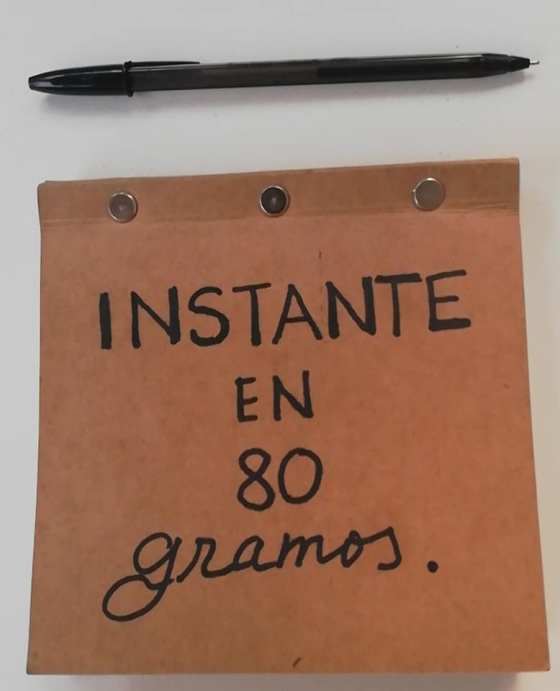 INSTANTE
EN
80
gramos.